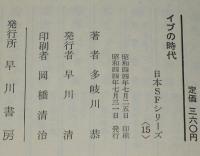 イブの時代
日本SFシリーズ〈15〉
定価 三六〇円
昭和四四年七月二五日 印刷
昭和四四年七月三一日 発行
著者 多岐川 恭
発行者 早川 清
印刷者 岡橋清治
発行所 早川書房